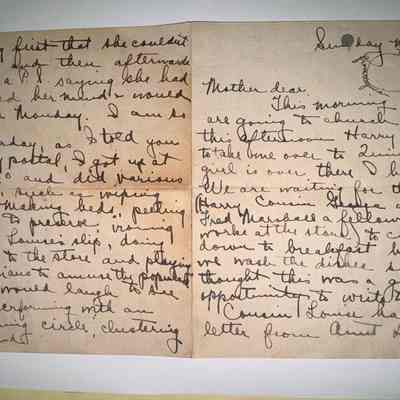 Sunday
Mother dear,
This morning
are going to church
this afternoon Harry
to take me over to
girl is over there I
We are waiting for
Harry, Cousin
Fred Marshall a fellow
works at the store to
down to breakfast
we wash the dishes
thought this was a
opportunity to write
Cousin Louise ha
letter from Aunt
first that she couldn't
and then afterwards
a P.S. saying she had
her mind & would
Monday. I am so
day, as I told you
postal, I got up at
and did various
such as wiping
making beds, peeling
to preserve, ironing
Louise's slip, doing
to the store and playing
to amuse the populace
would laugh to see
performing with an
circle, clustering